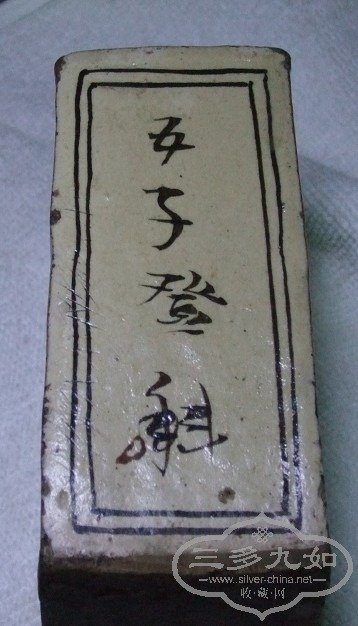 五子登科
三多九如
www.silver-china.net
收·藏·网